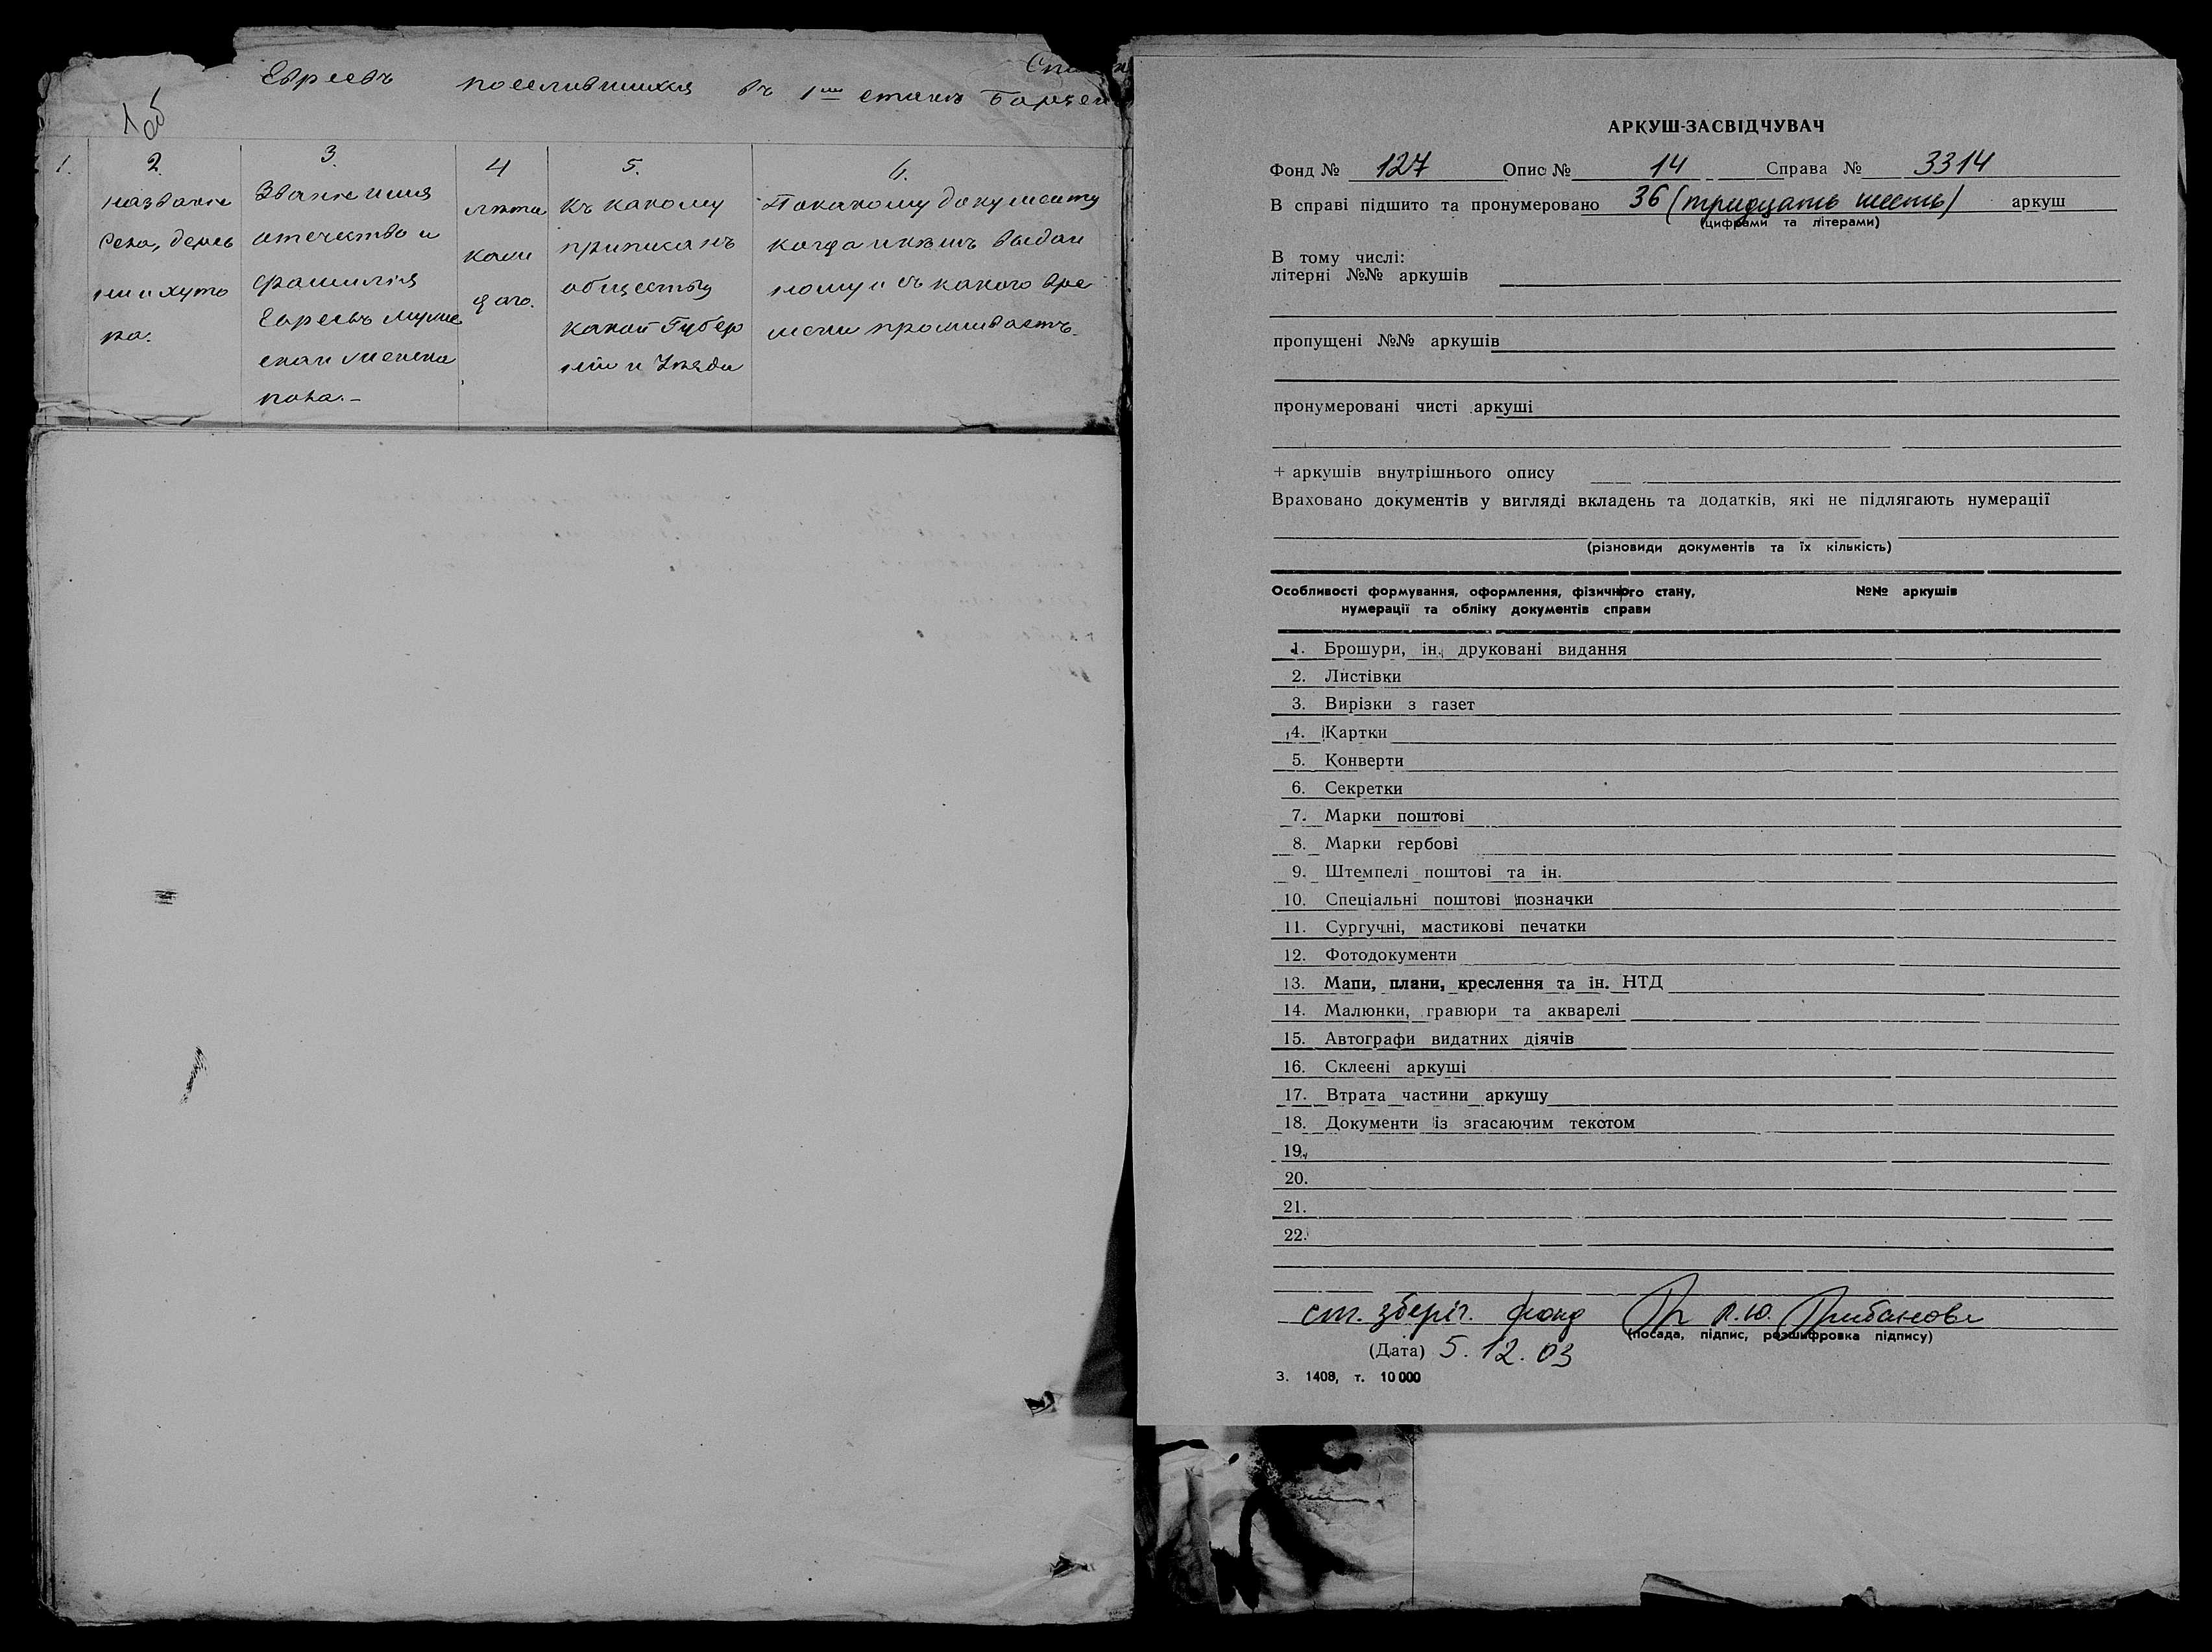 Евреевъ поселившихся въ 1мъ станѣ
1 об
1.
2.
названіе
села, дерев
ни и хуто
ра.
3.
Званіе имя
отечество и
фамилія
Евреевъ муже
скаго и женска
пола.–
4
лѣта
каж
даго.
5.
къ какому
приписанъ
обществу
какой Губер
ніи и Уѣзда
6.
По какому документу
когда и кѣмъ выдан
ному и съ какого вре
мени проживаетъ.
АРКУШ-ЗАСВІДЧУВАЧ
Фонд № 127 Опис № 14 Справа № 3314
В справі підшито та пронумеровано 36 (тридцать шесть) аркуш
(цифрами та літерами)
В тому числі:
літерні №№ аркушів
пропущені №№ аркушів
пронумеровані чисті аркуші
+ аркушів внутрішнього опису
Враховано документів у вигляді вкладень та додатків, які не підлягають нумерації
(різновиди документів та їх кількість)
Особливості формування, оформлення, фізичного стану, №№ аркушів
нумерації та обліку документів справи
1. Брошури, ін. друковані видання
2. Листівки
3. Вирізки з газет
4. Картки
5. Конверти
6. Секретки
7. Марки поштові
8. Марки гербові
9. Штемпелі поштові та ін.
10. Спеціальні поштові позначки
11. Сургучні, мастикові печатки
12. Фотодокументи
13. Мапи, плани, креслення та ін. НТД
14. Малюнки, гравюри та акварелі
15. Автографи видатних діячів
16. Склеєні аркуші
17. Втрата частини аркушу
18. Документи із згасаючим текстом
19.
20.
21.
22.
ст. зберіг. фонд
(посада, підпис, розшифровка підпису)
(Дата) 5.12.03
З. 1408, т. 10 000